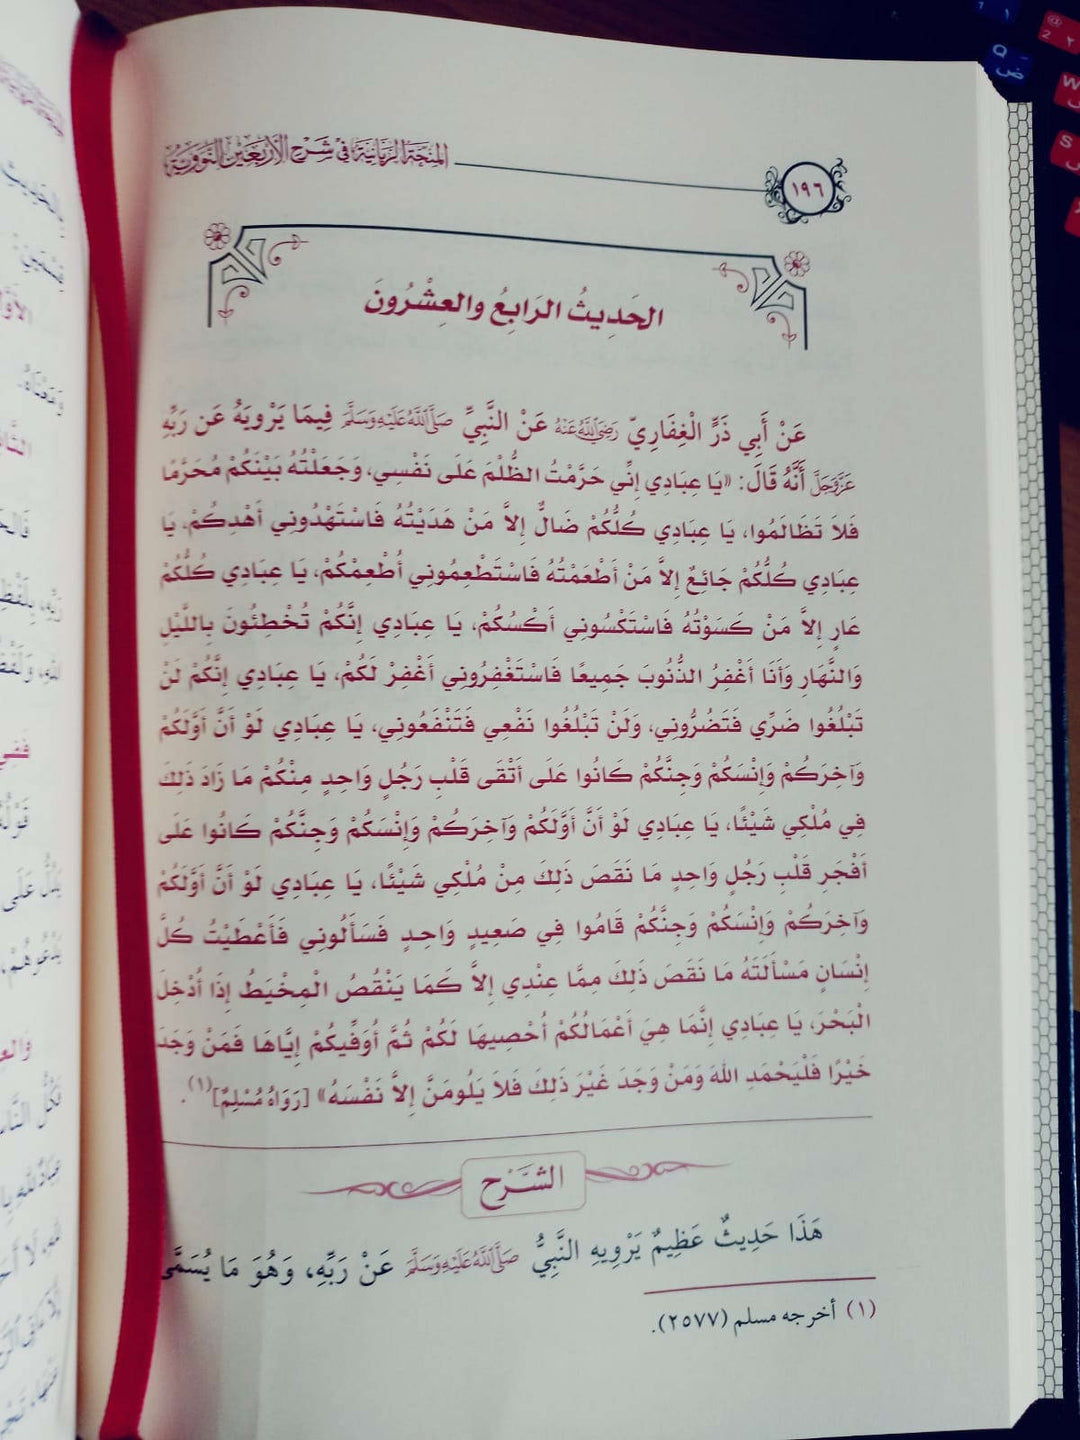 المنحة الربانية في شرح الأربعين النووية
١٩٦
الحَدِيثُ الرَابِعُ والعِشْرُونَ
عَنْ أَبِي ذَرٍّ الْغِفَارِيّ رَضِيَ اللَّهُ عَنْهُ عَنْ النَّبِيِّ صَلَّى اللَّهُ عَلَيْهِ وَسَلَّمَ فِيمَا يَرْوِيَهُ عَن رَبِّهِ
عَزَّوَجَلَّ أَنَّهُ قَالَ: «يَا عِبَادِي إِنِّي حَرَّمْتُ الظُّلْمَ عَلَى نَفْسِي، وَجَعَلْتُهُ بَيْنَكُمْ مُحَرَّمًا
فَلاَ تَظَالَمُوا، يَا عِبَادِي كُلُّكُمْ ضَالٌّ إِلاَّ مَنْ هَدَيْتُهُ فَاسْتَهْدُونِي أَهْدِكُمْ، يَا
عِبَادِي كُلُّكُمْ جَائِعٌ إِلاَّ مَنْ أَطْعَمْتُهُ فَاسْتَطْعِمُونِي أُطْعِمْكُمْ، يَا عِبَادِي كُلُّكُمْ
عَارٍ إِلاَّ مَنْ كَسَوْتُهُ فَاسْتَكْسُونِي أَكْسُكُمْ، يَا عِبَادِي إِنَّكُمْ تُخْطِئُونَ بِاللَّيْلِ
وَالنَّهَارِ وَأَنَا أَغْفِرُ الذُّنُوبَ جَمِيعًا فَاسْتَغْفِرُونِي أَغْفِرْ لَكُمْ، يَا عِبَادِي إِنَّكُمْ لَنْ
تَبْلُغُوا ضَرِّي فَتَضُرُّونِي، وَلَنْ تَبْلُغُوا نَفْعِي فَتَنْفَعُونِي، يَا عِبَادِي لَوْ أَنَّ أَوَّلَكُمْ
وَآخِرَكُمْ وَإِنْسَكُمْ وَجِنَّكُمْ كَانُوا عَلَى أَتْقَى قَلْبِ رَجُلٍ وَاحِدٍ مِنْكُمْ مَا زَادَ ذَلِكَ
فِي مُلْكِي شَيْئًا، يَا عِبَادِي لَوْ أَنَّ أَوَّلَكُمْ وَآخِرَكُمْ وَإِنْسَكُمْ وَجِنَّكُمْ كَانُوا عَلَى
أَفْجَرِ قَلْبِ رَجُلٍ وَاحِدٍ مَا نَقَصَ ذَلِكَ مِنْ مُلْكِي شَيْئًا، يَا عِبَادِي لَوْ أَنَّ أَوَّلَكُمْ
وَآخِرَكُمْ وَإِنْسَكُمْ وَجِنَّكُمْ قَامُوا فِي صَعِيدٍ وَاحِدٍ فَسَأَلُونِي فَأَعْطَيْتُ كُلَّ
إِنْسَانٍ مَسْأَلَتَهُ مَا نَقَصَ ذَلِكَ مِمَّا عِنْدِي إِلاَّ كَمَا يَنْقُصُ الْمِخْيَطُ إِذَا أُدْخِلَ
الْبَحْرَ، يَا عِبَادِي إِنَّمَا هِيَ أَعْمَالُكُمْ أُحْصِيهَا لَكُمْ ثُمَّ أُوَفِّيكُمْ إِيَّاهَا فَمَنْ وَجَدَ
خَيْرًا فَلْيَحْمَدِ اللهَ وَمَنْ وَجَدَ غَيْرَ ذَلِكَ فَلاَ يَلُومَنَّ إِلاَّ نَفْسَهُ» [رَوَاهُ مُسْلِمٌ](١).
الشَّرْح
هَذَا حَدِيثٌ عَظِيمٌ يَرْوِيهِ النَّبِيُّ صَلَّى اللَّهُ عَلَيْهِ وَسَلَّمَ عَنْ رَبِّهِ، وَهُوَ مَا يُسَمَّى
(١) أخرجه مسلم (٢٥٧٧).